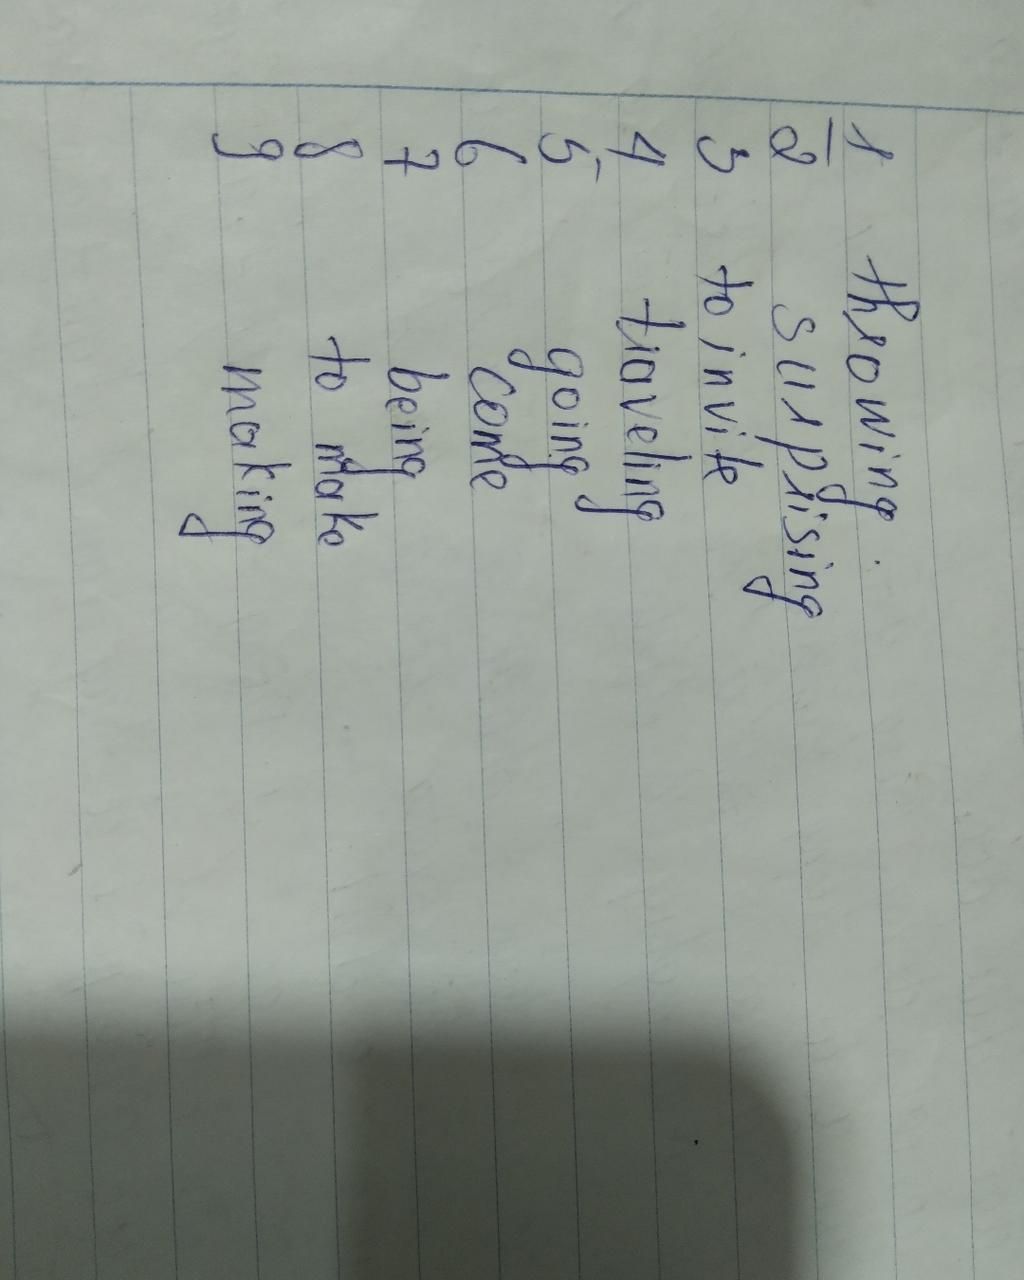 1 throwing.
2 surprising
3 to invite
4 traveling
5 going
6 come
7 being
8 to make
9 making